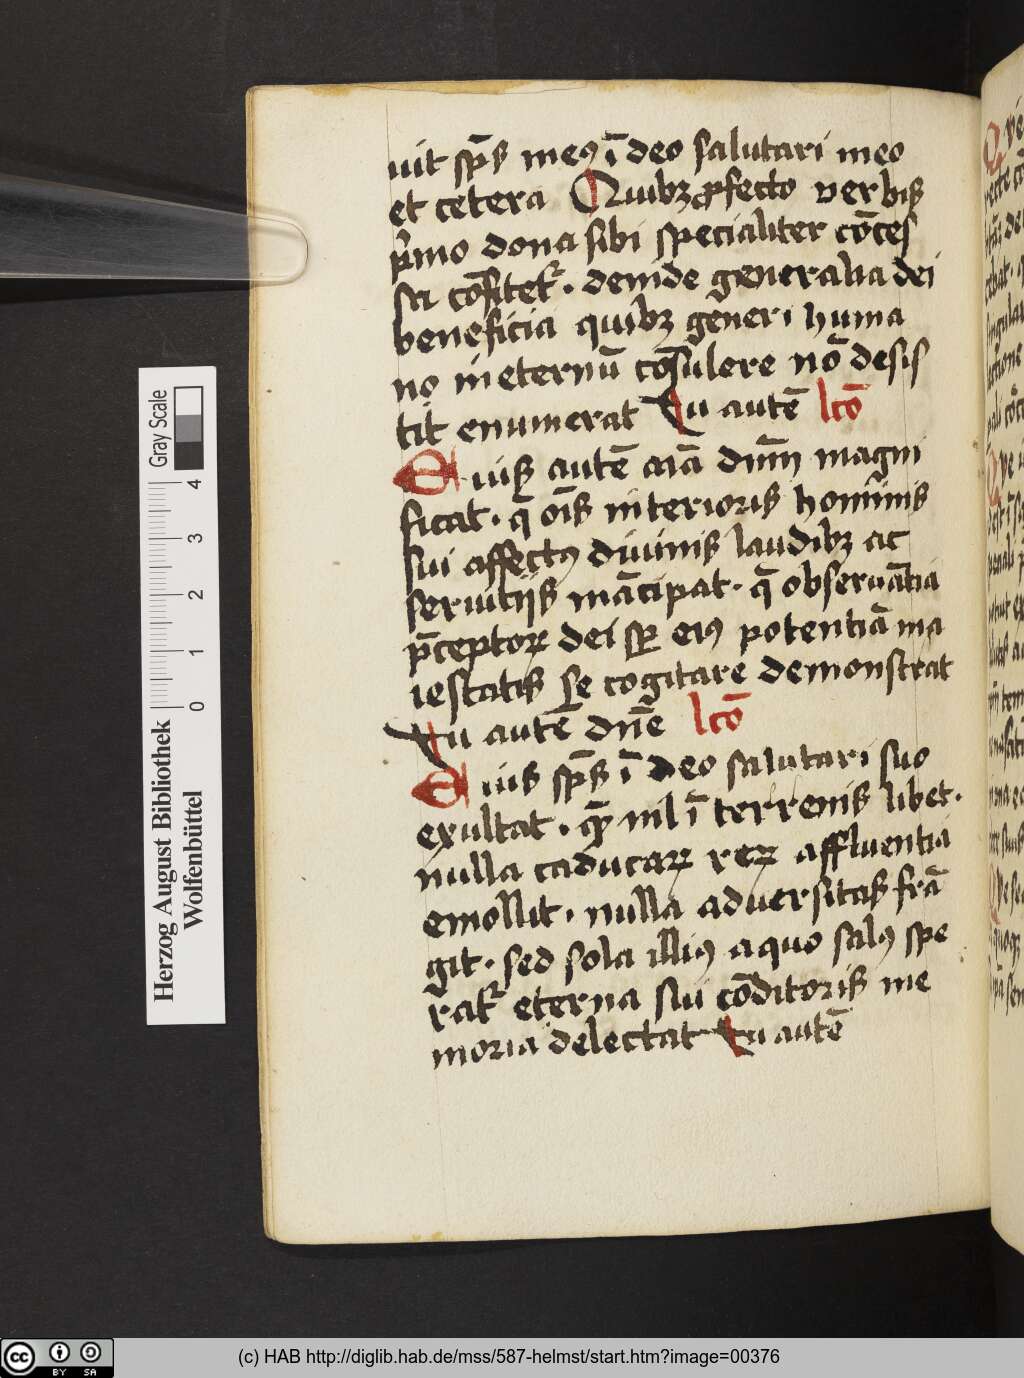 uit sp̄s meꝰ ī deo salutari meo
et cetera Quibꝫ ꝓfecto verbis
p̍mo dona sibi specialiter cōces
sa cōfitet᷑. deinde generalia dei
beneficia quibꝫ generi huma
no in eternū cōsulere nō desis
tit enumerat Tu autē lcō
Cuiꝰ autē aīa dn̄m magni
ficat. q̄ oīs interioris hominis
sui affectꝰ diuinis laudibꝫ ac
seruitijs mācipat. q̄ obseruātia
p̄ceptoꝝ dei sꝑ eiꝰ potentiā ma
iestatis se cogitare demonstrat
Tu autē dn̄e lcō
Cuiꝰ sp̄s ī deo salutari suo
exultat. quē nil ī terrenis libet.
nulla caducaꝝ reꝝ affluentia
emollit. nulla aduersitas frā
git. sed sola illiꝰ a quo salꝰ spe
rat᷑ eterna sui cōditoris me
moria delectat Tu autē
Gray Scale
4
3
2
1
0
Herzog August Bibliothek
Wolfenbüttel
cc
BY SA
(c) HAB http://diglib.hab.de/mss/587-helmst/start.htm?image=00376